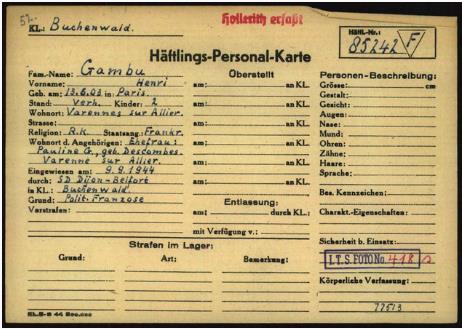 52.
Hollerith erfaßt
KL.: Buchenwald.
Häftl.-Nr.:
85242 F
Häftlings-Personal-Karte
Fam.-Name: Gambu
Vorname: Henri
Geb. am: 13.6.03 in: Paris.
Stand: Verh. Kinder: 2
Wohnort: Varennes sur Allier.
Strasse:
Religion: R.K. Staatsang.: Frankr.
Wohnort d. Angehörigen: Ehefrau:
Pauline G., geb. Descombes.
Varenne sur Allier.
Eingewiesen am: 9.9.1944
durch: SD Dijon-Belfort
in KL.: Buchenwald.
Grund: Polit. Franzose
Vorstrafen:
Überstellt
am: an KL.
am: an KL.
am: an KL.
am: an KL.
am: an KL.
am: an KL.
Entlassung:
am: durch KL.:
mit Verfügung v.:
Personen-Beschreibung:
Grösse: cm
Gestalt:
Gesicht:
Augen:
Nase:
Mund:
Ohren:
Zähne:
Haare:
Sprache:
Bes. Kennzeichen:
Charakt.-Eigenschaften:
Sicherheit b. Einsatz:
I.T.S. FOTO No. 418
Körperliche Verfassung:
Strafen im Lager:
Grund: Art: Bemerkung: